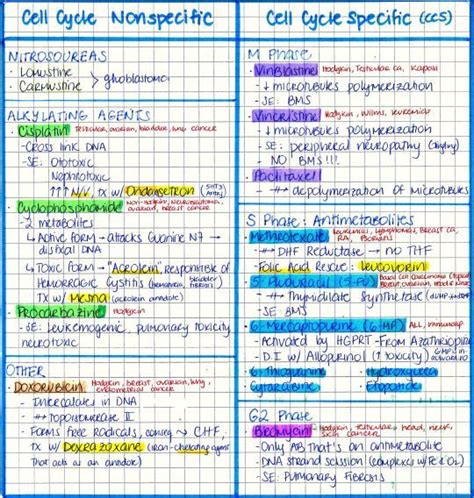 Cell Cycle Nonspecific
NITROSOUREAS
• Lomustine
• Carmustine > glioblastoma
ALKYLATING AGENTS
• Cisplatin Testicular, ovarian, bladder, lung cancer
- Cross link DNA
- SE: Ototoxic
Nephrotoxic
↑↑↑ N/V, TX w/ Ondansetron (5HT3 Antag)
• Cyclophosphamide Non-Hodgkin, Neuroblastoma, ovarian, breast cancer
- 2 metabolites
↳ Active form → attacks Guanine N7 →
distxal DNA
↳ Toxic form → "Acrolein" responsible of
Hemorragic Cystitis (hematuria, bladder fibrosis)
TX w/ Mesna (acrolein annodote)
• Procarbazine Hodgkin
- SE: Leukemogenic, pulmonary toxicity,
neurotoxic
OTHER
• Doxorubicin Hodgkin, breast, ovarian, lung, endometrial cancer
- Intercalates in DNA
- Topoisomerase II
- Forms free Radicals, CHF
TX w/ Dexrazoxane (iron-chelating agent
That acts as an annodote)
Cell Cycle Specific (CCS)
M Phase
• Vinblastine Hodgkin, Testicular ca, Kaposi
- ↓ microtubules polymerization
- SE: BMS
• Vincristine Hodgkin, Wilms, leukemias
- ↓ microtubules polymerization
- SE: peripheral neuropathy
- NO BMS!!!
• Paclitaxel
- depolymerization of microtubules
S Phase: Antimetabolites
• Methotrexate Leukemias, Lymphomas, breast ca, RA, Psoriasis
- DHF Reductase → no THF
- Folic Acid Rescue: leucovorin
• 5-Fluoruracil (5-FU) Basal cell carcinoma (topical)
- Thymidilate Synthetase
- SE: BMS
• 6-Mercaptopurine (6-MP) ALL, immunosup
- Activated by HGPRT - From Azathioprine
- D.I w/ Allopurinol (↑ toxicity)
• 6-Thioguanine • Hydroxyurea
• Cytarabine • Etoposide
G2 Phase
• Bleomycin Hodgkin, Testicular, head, neck, skin cancer
- Only AB that's an antimetabolite
- DNA strand scission (complexes w/ Fe & O2)
- SE: Pulmonary Fibrosis